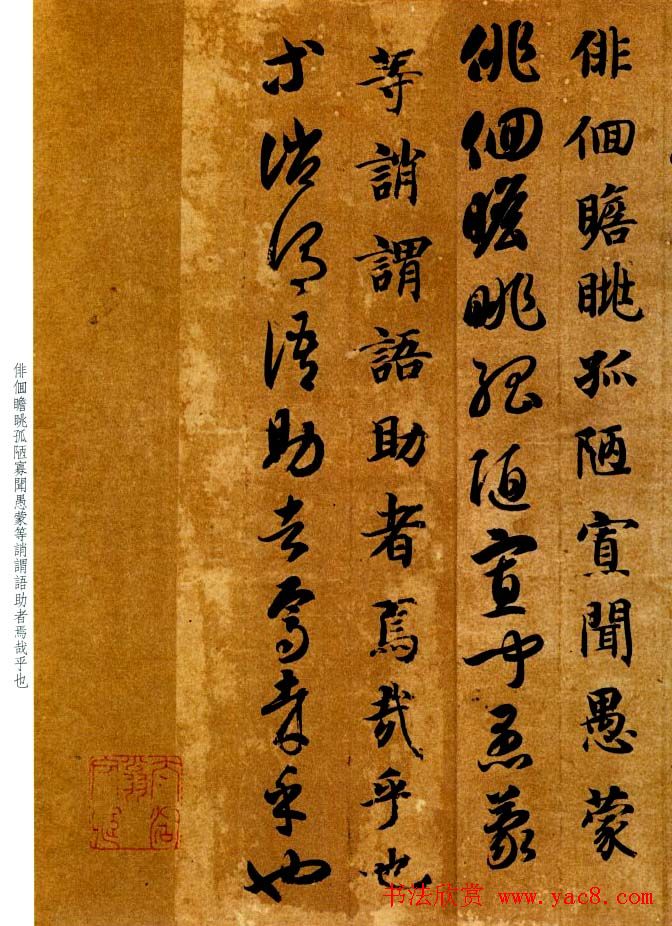 俳佪瞻眺孤陋寡聞愚蒙
俳佪瞻眺孤陋寡聞愚蒙
等誚謂語助者焉哉乎也
等誚謂語助者焉哉乎也
俳佪瞻眺孤陋寡聞愚蒙等誚謂語助者焉哉乎也
书法欣赏 www.yac8.com